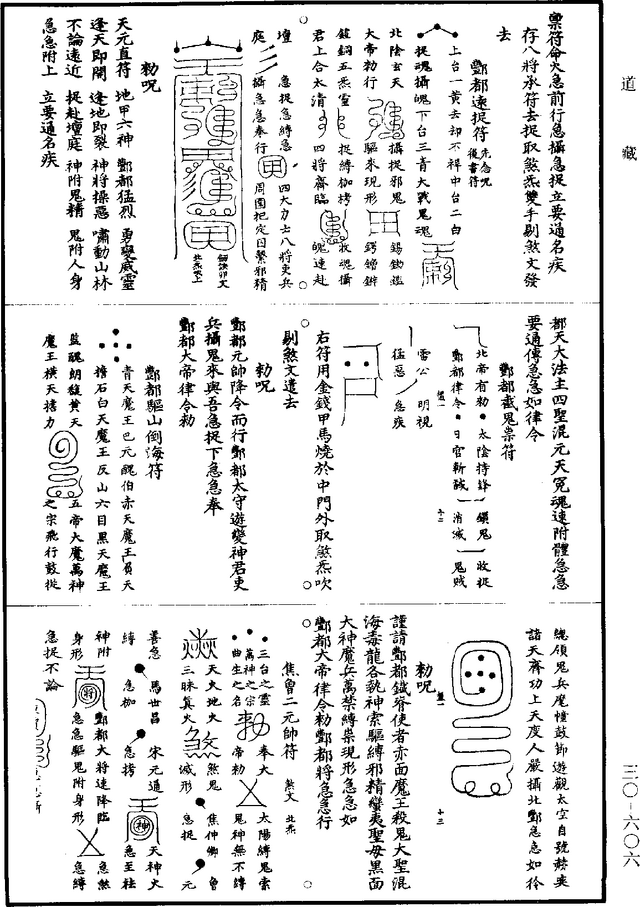 道藏
稟符命火急前行急攝急捉立要通名疾
存八將承符去捉取煞炁雙手剔煞文發
去
酆都速捉符先念呪後書符
上台一黃去却不祥中台二白
捉魂攝魄下台三青大戰鬼魂
北陰玄天
攝捉邪鬼
大帝勑行
驅來現形
捉縛枷栲
收魂攝
君上合太清
四將齊臨
魄速赴
壇
急捉急縛急
四大力士八將吏兵
庭
攝急急奉行
周圍把定日繫邪精
勑呪
天元直符
地甲六神
酆都猛烈
勇變威靈
逢天即開
逢地即裂
神將操惡
嘯動山林
不論遠近
捉赴壇庭
神附鬼精
鬼附人身
急急附上
立要通名疾
都天大法主四聖混元天冤魂速附體急急
要通傳急急如律令
酆都截鬼祟符
北帝有勑
太陰持鋒
鎖鬼
收捉
酆都律令
日官斬誡
消滅
鬼賊
雷公
明視
猛惡
急疾
右符用金錢甲馬燒於中門外取煞炁吹
剔煞文遣去
勑呪
酆都元帥降令而行酆都太守遊變神君吏
兵攝鬼來與吾急捉下急急奉
酆都大帝律令勑
酆都驅山倒海符
青天魔王巴元醜伯赤天魔王負天
擔石白天魔王反山六目黑天魔王
監醜朗馥黃天
五帝大魔萬神
魔王橫天擔力
之宗飛行鼓從
總領鬼兵麾幢鼓節遊觀太空自號赫奕
諸天齊功上天度人嚴攝北酆急急如律令
勑呪
謹請酆都鐵脊使者赤面魔王殺鬼大聖混
海毒龍各執神索驅縛邪精蠻夷聖毋黑面
大神魔兵萬禁縛祟現形急急如
酆都大帝律令勑酆都將急急行
焦曾二元帥符
煞文
北炁
三台之靈
奉大
太陽縛鬼索
萬神之宗
帝勑
鬼神無不縛
曲生之名
天火地火
煞鬼
焦仲卿
曾
三昧真火
滅形
急捉
元
善急
馬世昌
宋元通
天神火
縛
急枷
急拷
急至柱
神附
酆都大將速降臨
急煞
身形
急急驅鬼附身形
急縛
急捉不論
三〇-六〇六